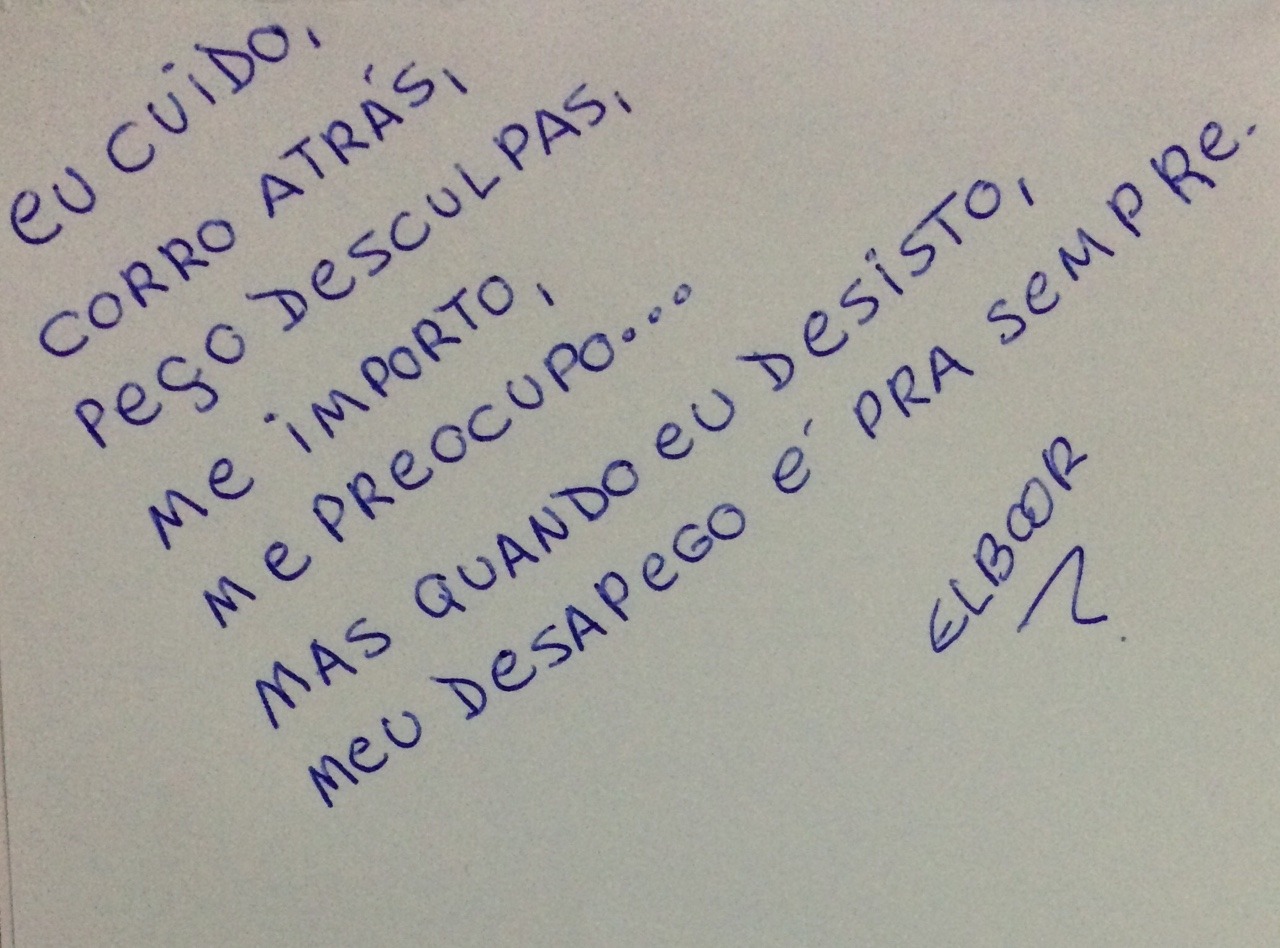 eu CUiDO,
CORRO ATRÁS,
PeçO DesCULPAS,
Me iMPORTO,
Me PReOCUPO...
MAS QUANDO eU DesisTO,
MeU DesAPeGO é PRA seMPRe.
ELBOOR